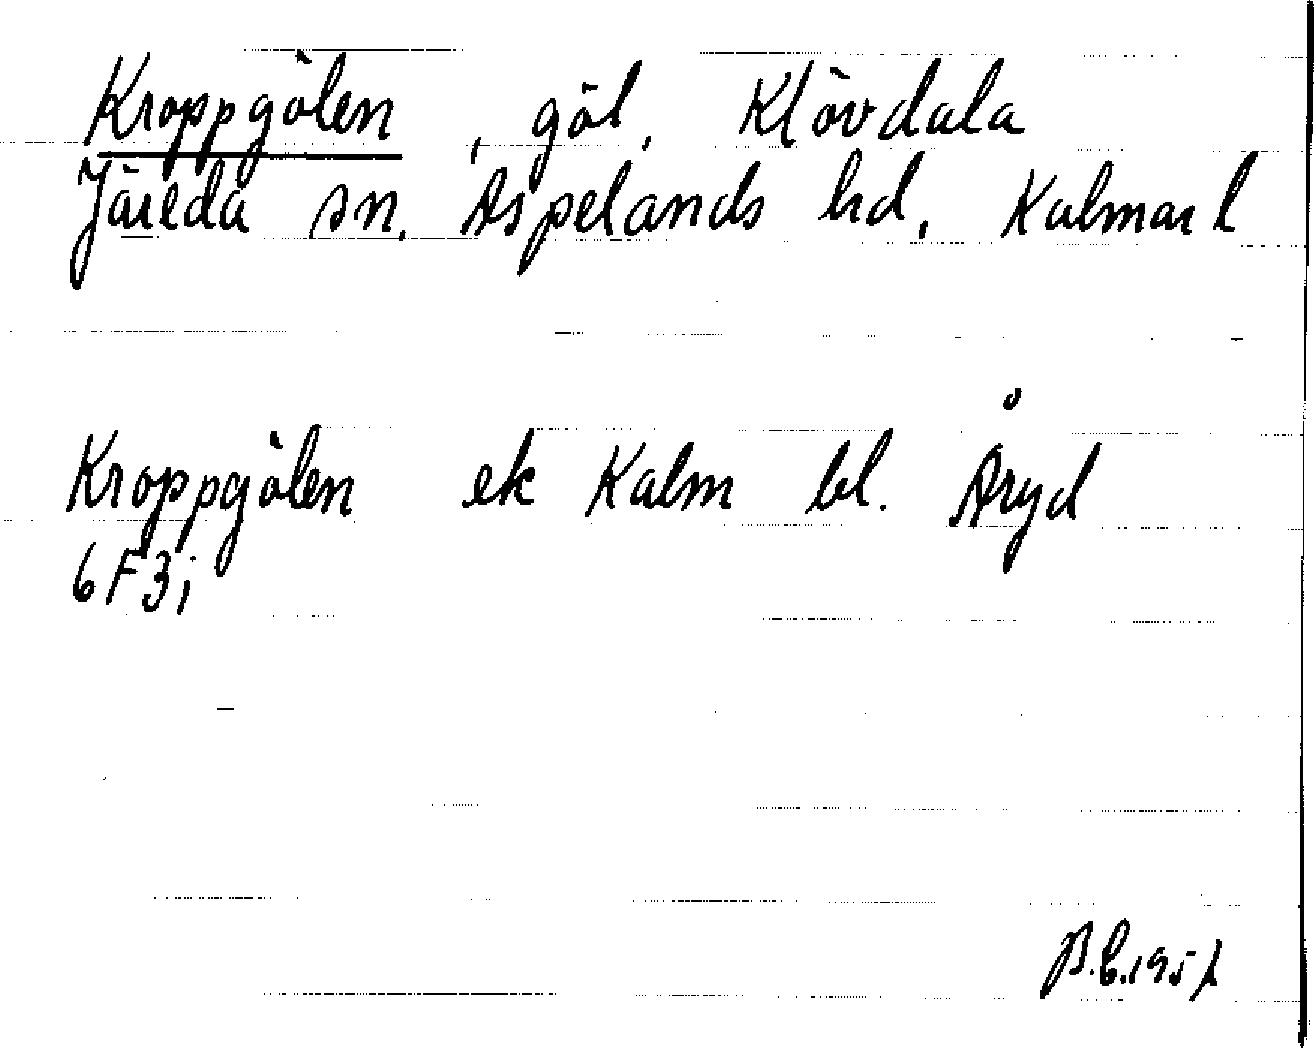 Kroppgölen, göl, Klövdala
Järeda sn. Aspelands hd, Kalmar l
Kroppgölen ek Kalm bl. Åryd
6F3i